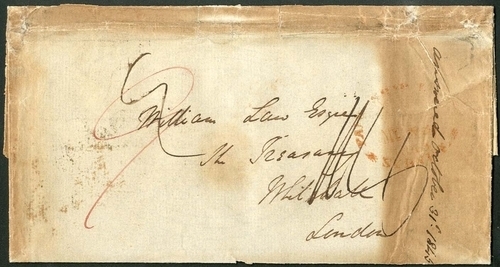 William Law Esqre
The Treasury
Whitehall
London
Answered October 31st. 1845